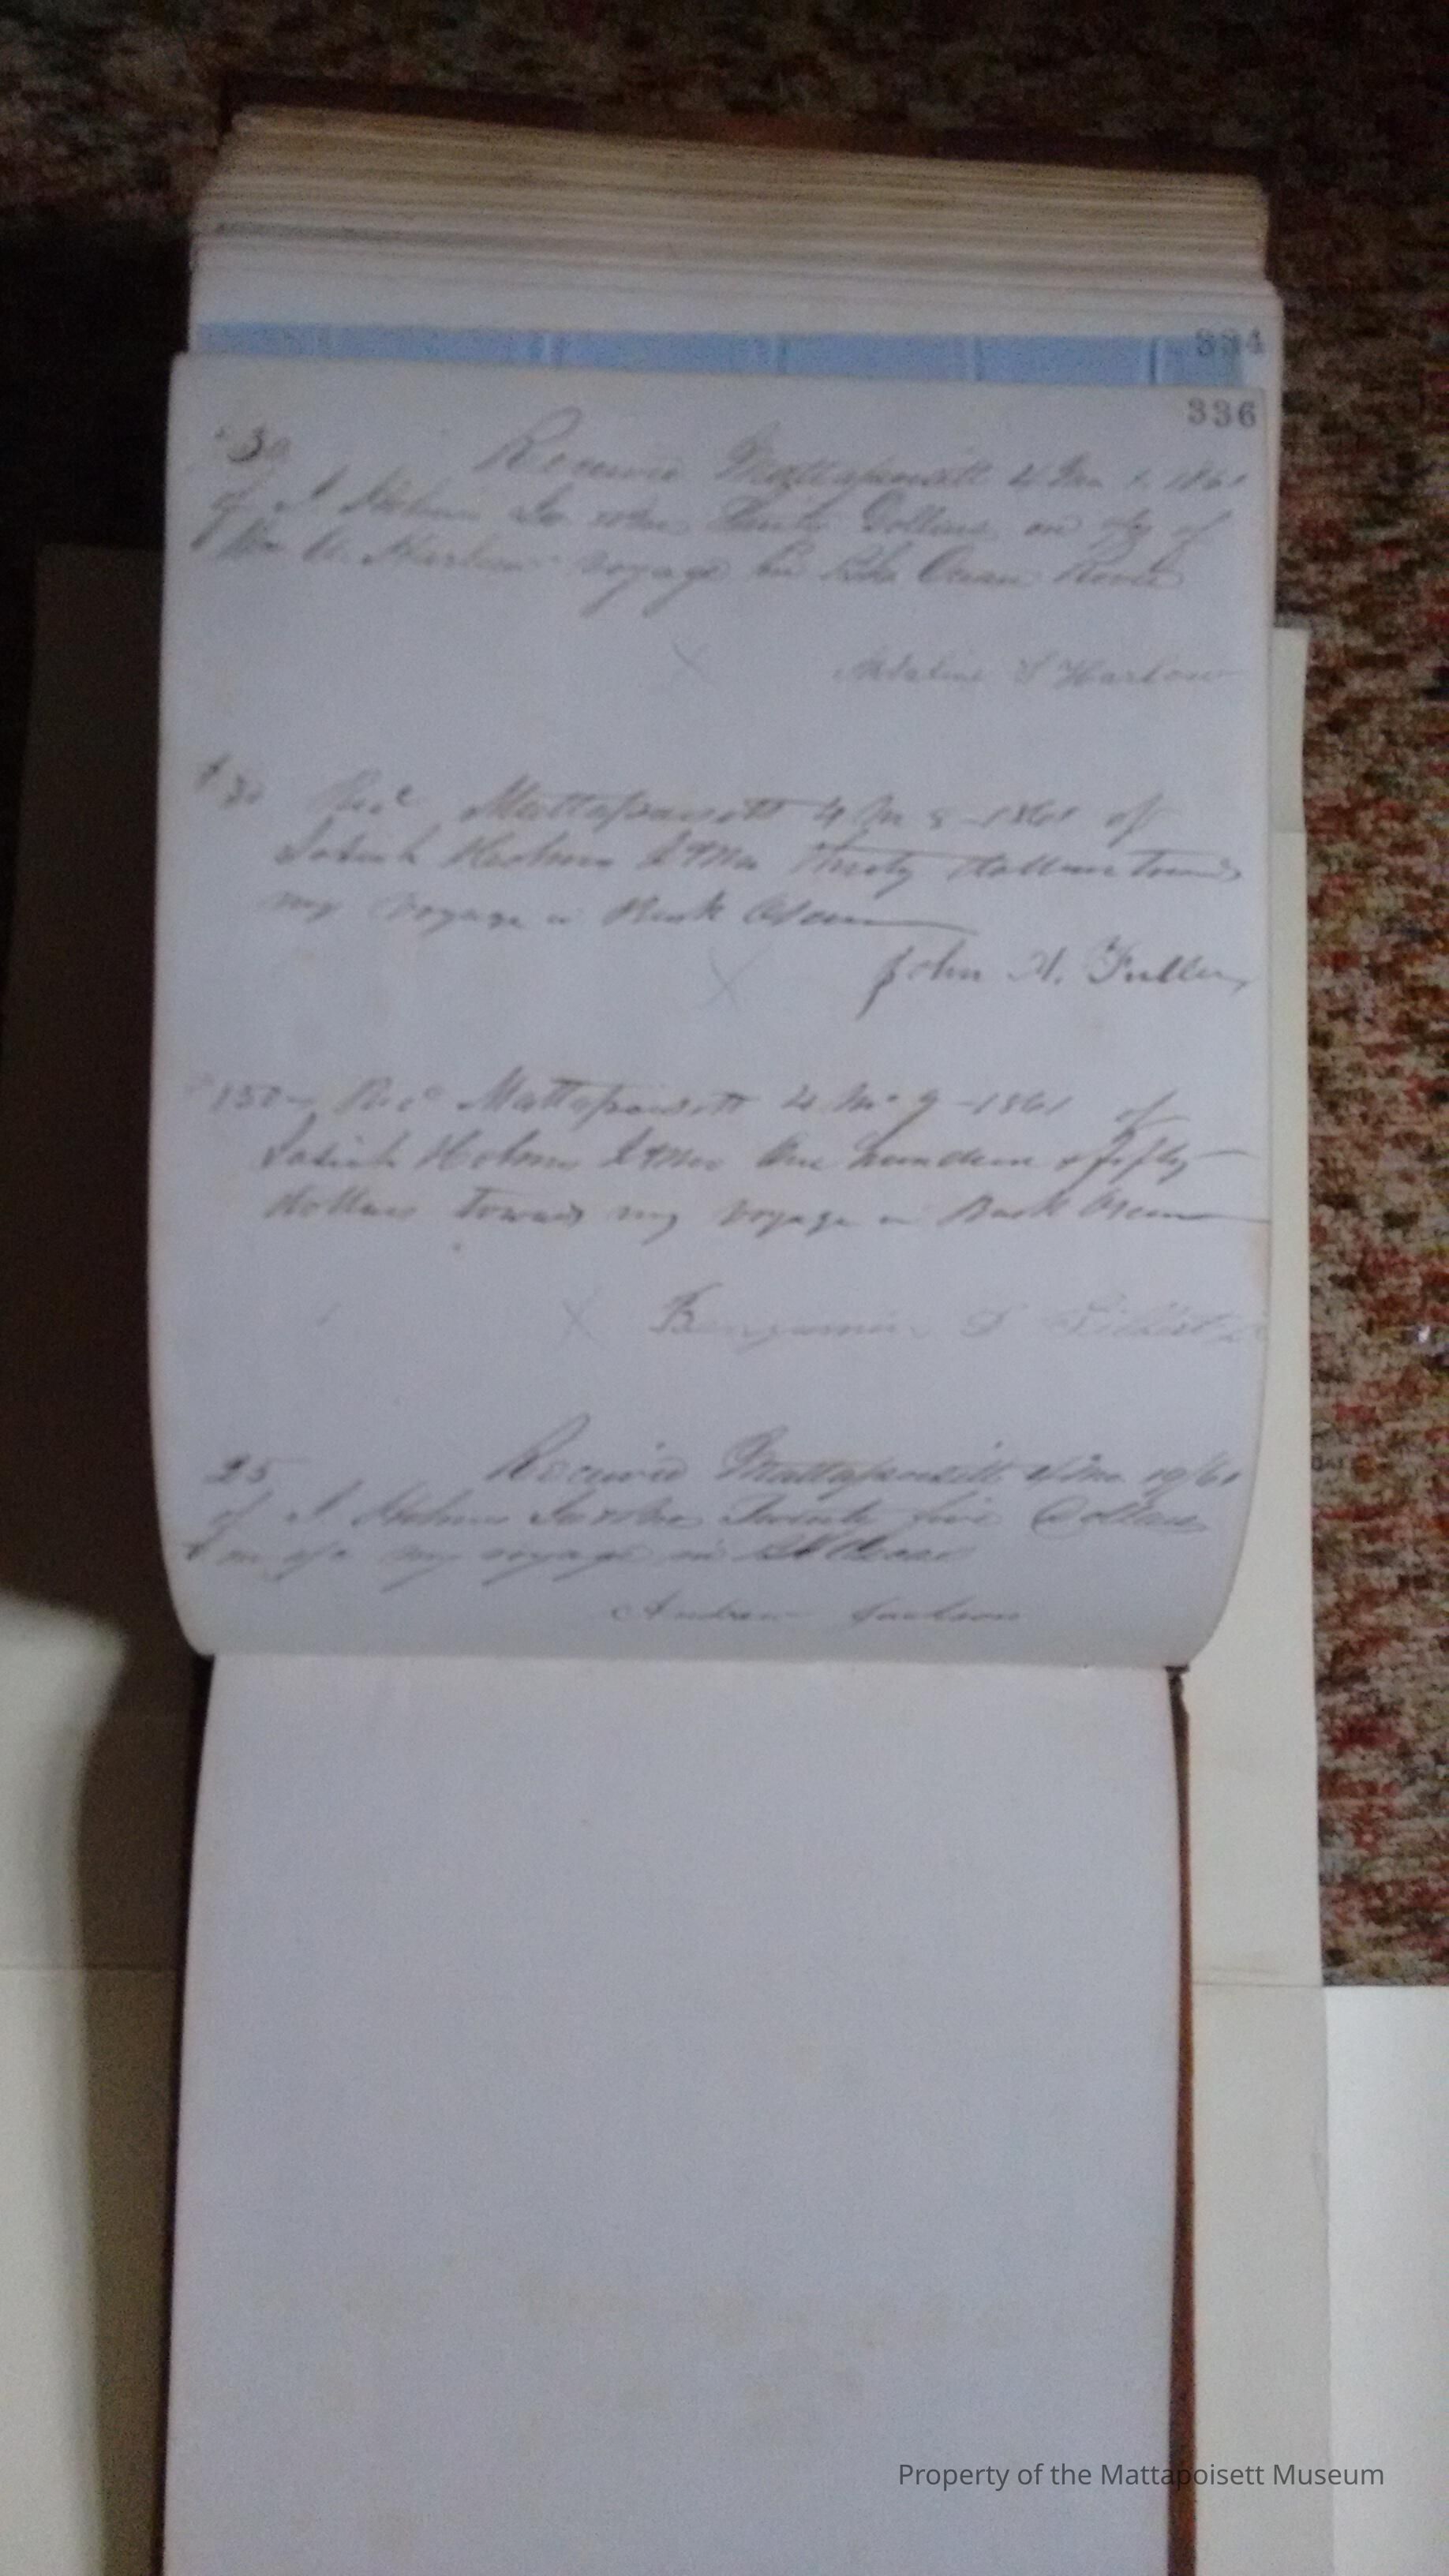 334
336
$30 Received Mattapoisett 4 Mo 1. 1861
of J Holmes Jr & Bro Thirty Dollars on a/c of
Wm Harlow voyage in Ocean Rover
X S Harlow
$30 Recd Mattapoisett 4 Mo 8-1861 of
Josiah Holmes Jr & Bro Thirty dollars towards
my voyage in Bark Ocean
X John A. Fuller
150- Recd Mattapoisett 4 Mo 9-1861 of
Josiah Holmes Jr & Bro One hundred & fifty
dollars towards my voyage in Bark Ocean
X Benjamin
25 Received Mattapoisett 4 mo 19/61
of J Holmes Jr & Bro Twenty five Dollars
on a/c my voyage in
Andrew Jackson
Property of the Mattapoisett Museum